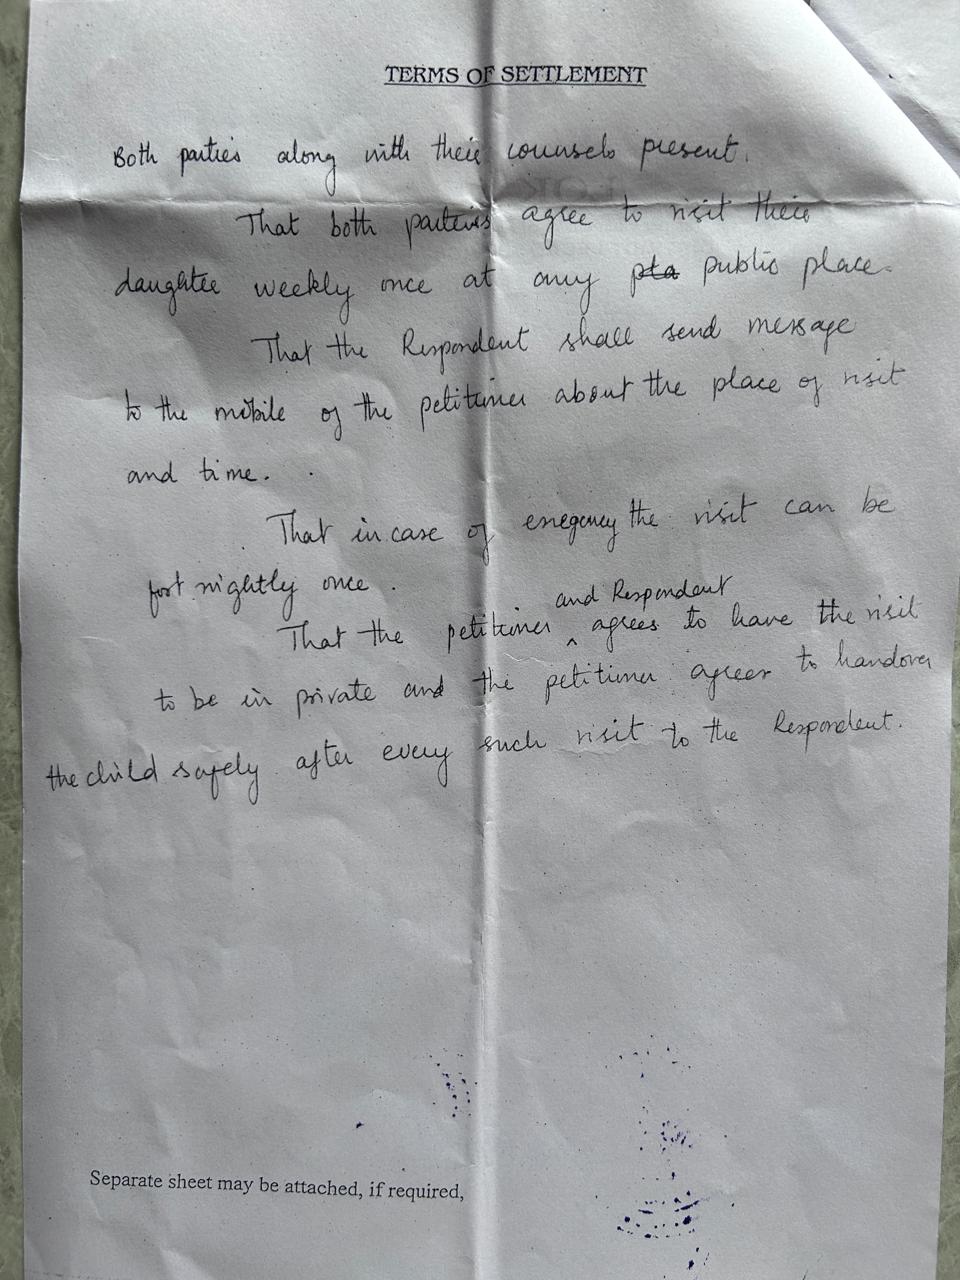 TERMS OF SETTLEMENT
Both parties along with their counsels present.
That both parties agree to visit their
daughter weekly once at any pla public place.
That the Respondent shall send message
to the mobile of the petitioner about the place of visit
and time.
That in case of enegency the visit can be
fort nightly once.
and Respondent
That the petitioner ^ agrees to have the visit
to be in private and the petitioner agrees to handover
the child safely after every such visit to the Respondent.
Separate sheet may be attached, if required,